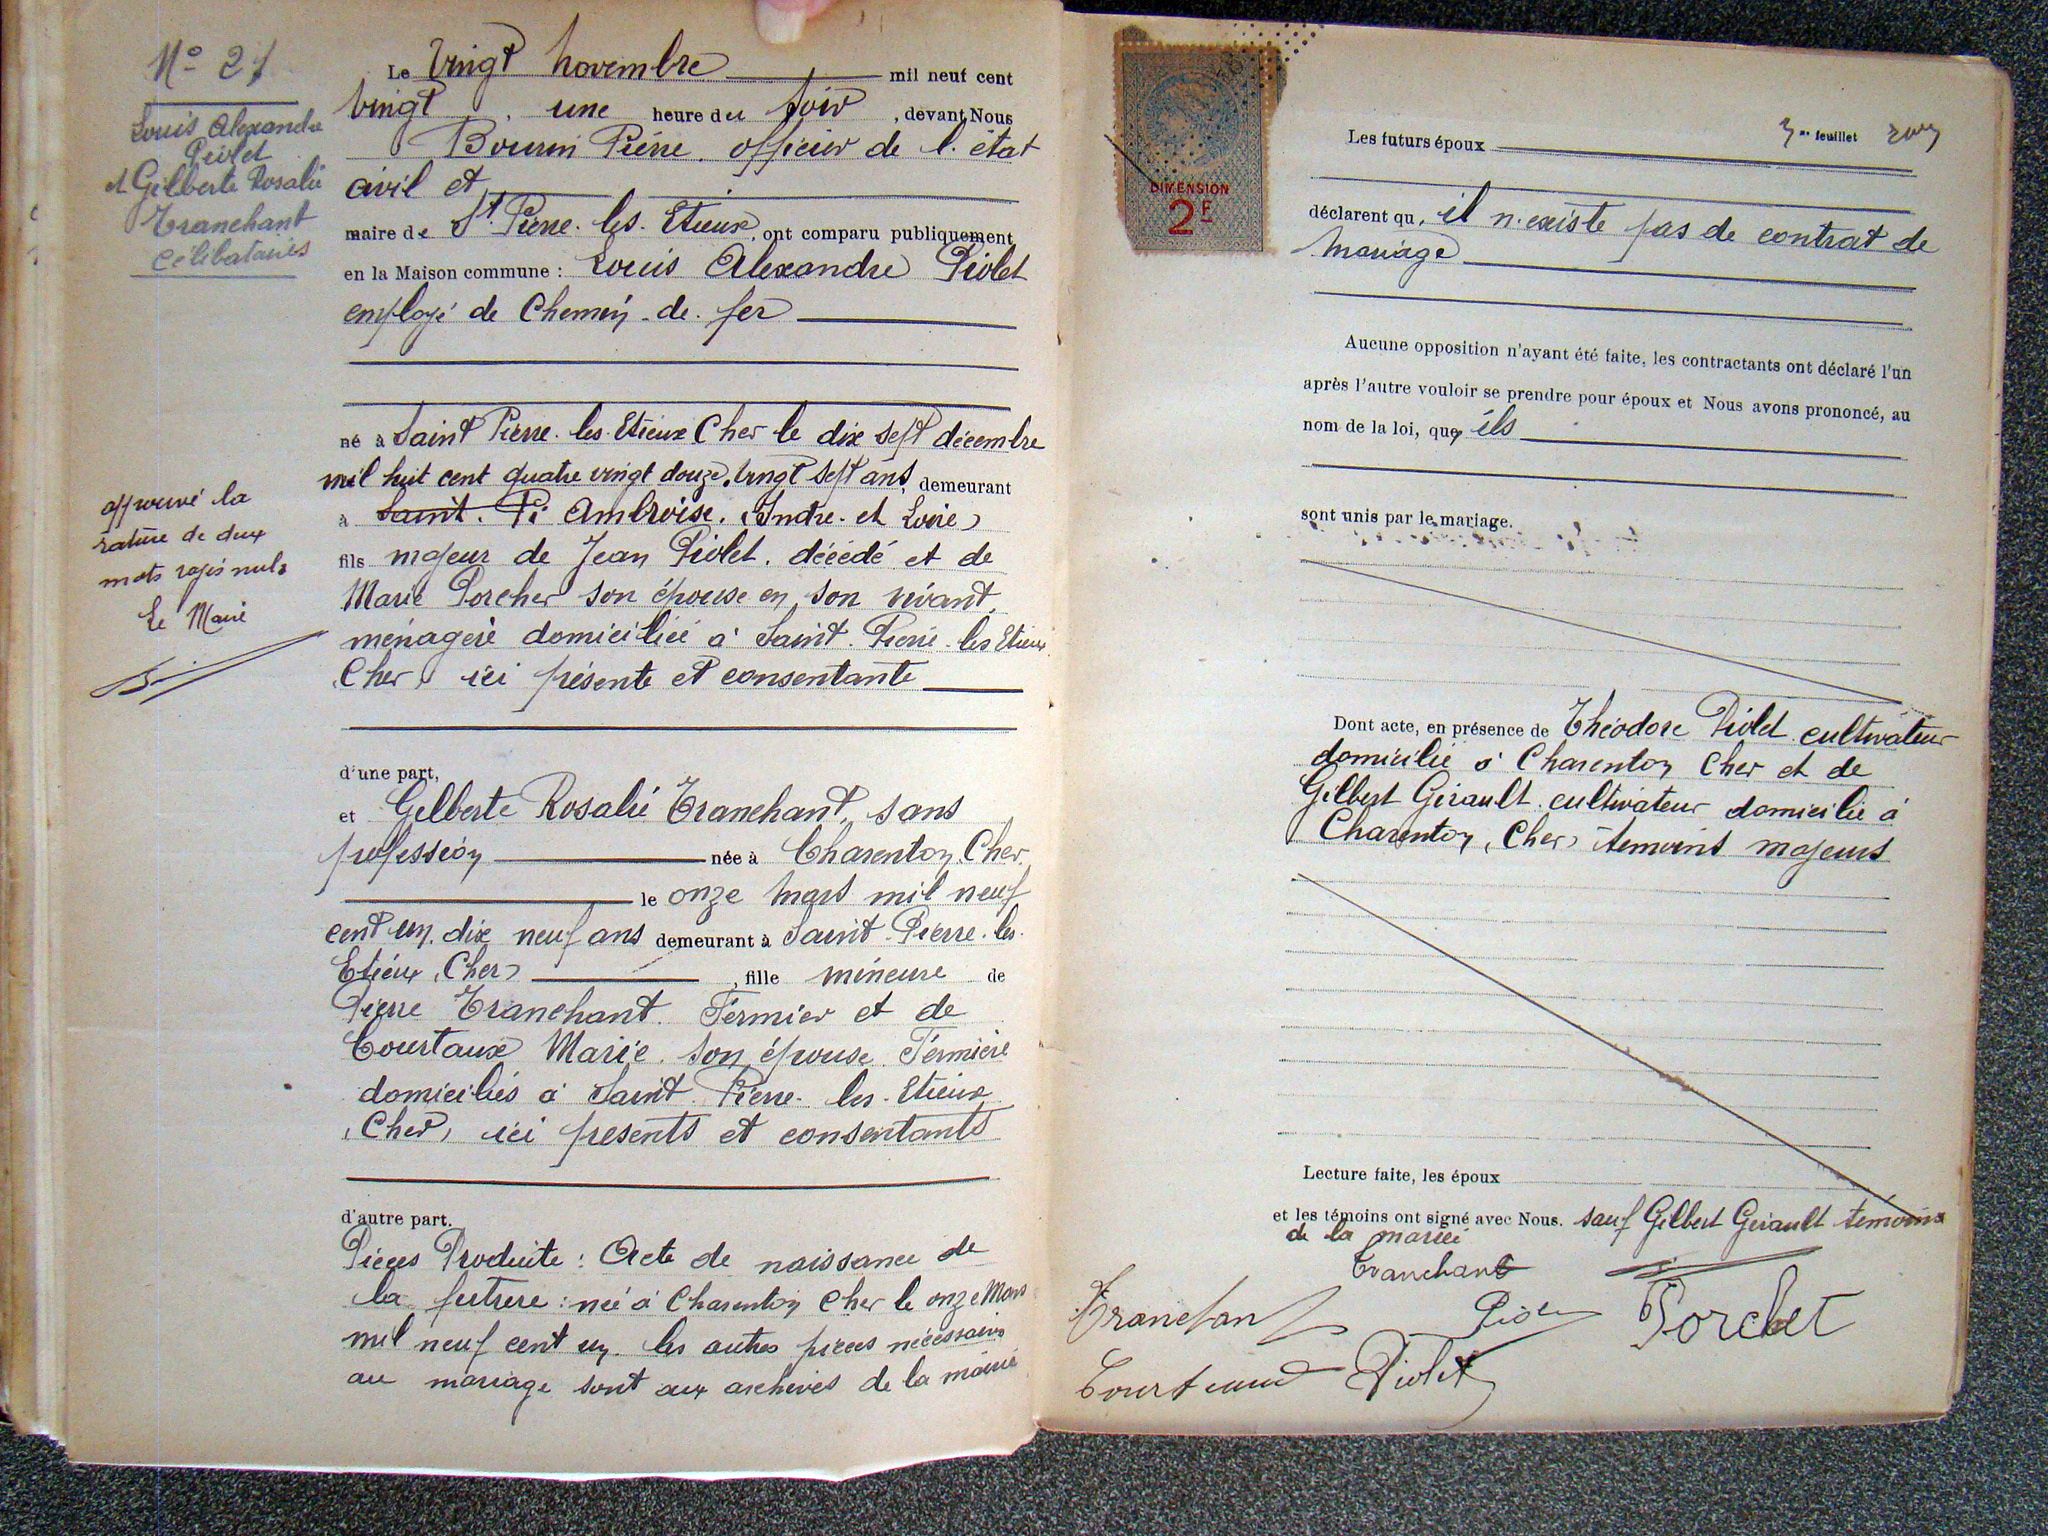 N° 21
Louis Alexandre
Piolet
et Gilberte Rosalie
Tranchant
Célibataires
Le Vingt novembre mil neuf cent
vingt, une heure du soir, devant Nous
Bourin Pierre. officier de l. état
civil et
maire de St. Pierre. les. Etieux, ont comparu publiquement
en la Maison commune : Louis Alexandre Piolet
employé de Chemin. de. fer
né à Saint Pierre. les. Etieux Cher le dix sept décembre
mil huit cent quatre vingt douze, vingt sept ans, demeurant
à Saint. Pi Ambroise. (Indre. et Loire)
approuvé la
rature de deux
mots rayés nuls
Le Maire
fils majeur de Jean Piolet. décédé et de
Marie Porcher son épouse en son vivant,
ménagère domiciliée à Saint. Pierre. les Etieux
(Cher) ici présente et consentante
d'une part,
et Gilberte Rosalie Tranchant, sans
profession née à Charenton. Cher.
le onze mars mil neuf
cent un. dix neuf ans demeurant à Saint. Pierre. les.
Etieux (Cher), fille mineure de
Pierre Tranchant. Fermier et de
Courtaux Marie. son épouse. Fermière
domiciliés à Saint. Pierre. les. Etieux
(Cher) ici présents et consentants
d'autre part.
Pièces Produite : Acte de naissance de
la future : née à Charenton Cher le onze Mars
mil neuf cent un. les autres pièces nécessaires
au mariage sont aux archives de la mairie
DIMENSION
2F
feuillet
Les futurs époux
déclarent qu, il n. existe pas de contrat de
mariage
Aucune opposition n'ayant été faite, les contractants ont déclaré l'un
après l'autre vouloir se prendre pour époux et Nous avons prononcé, au
nom de la loi, que ils
sont unis par le mariage.
Dont acte, en présence de Théodore Piolet. cultivateur
domicilié à Charenton Cher et de
Gilbert Girault. cultivateur domicilié à
Charenton, (Cher) témoins majeurs
Lecture faite, les époux
et les témoins ont signé avec Nous. sauf Gilbert Girault témoins
de la mariée
Tranchant
Tranchant Piolet Porchet
Courtaux Piolet